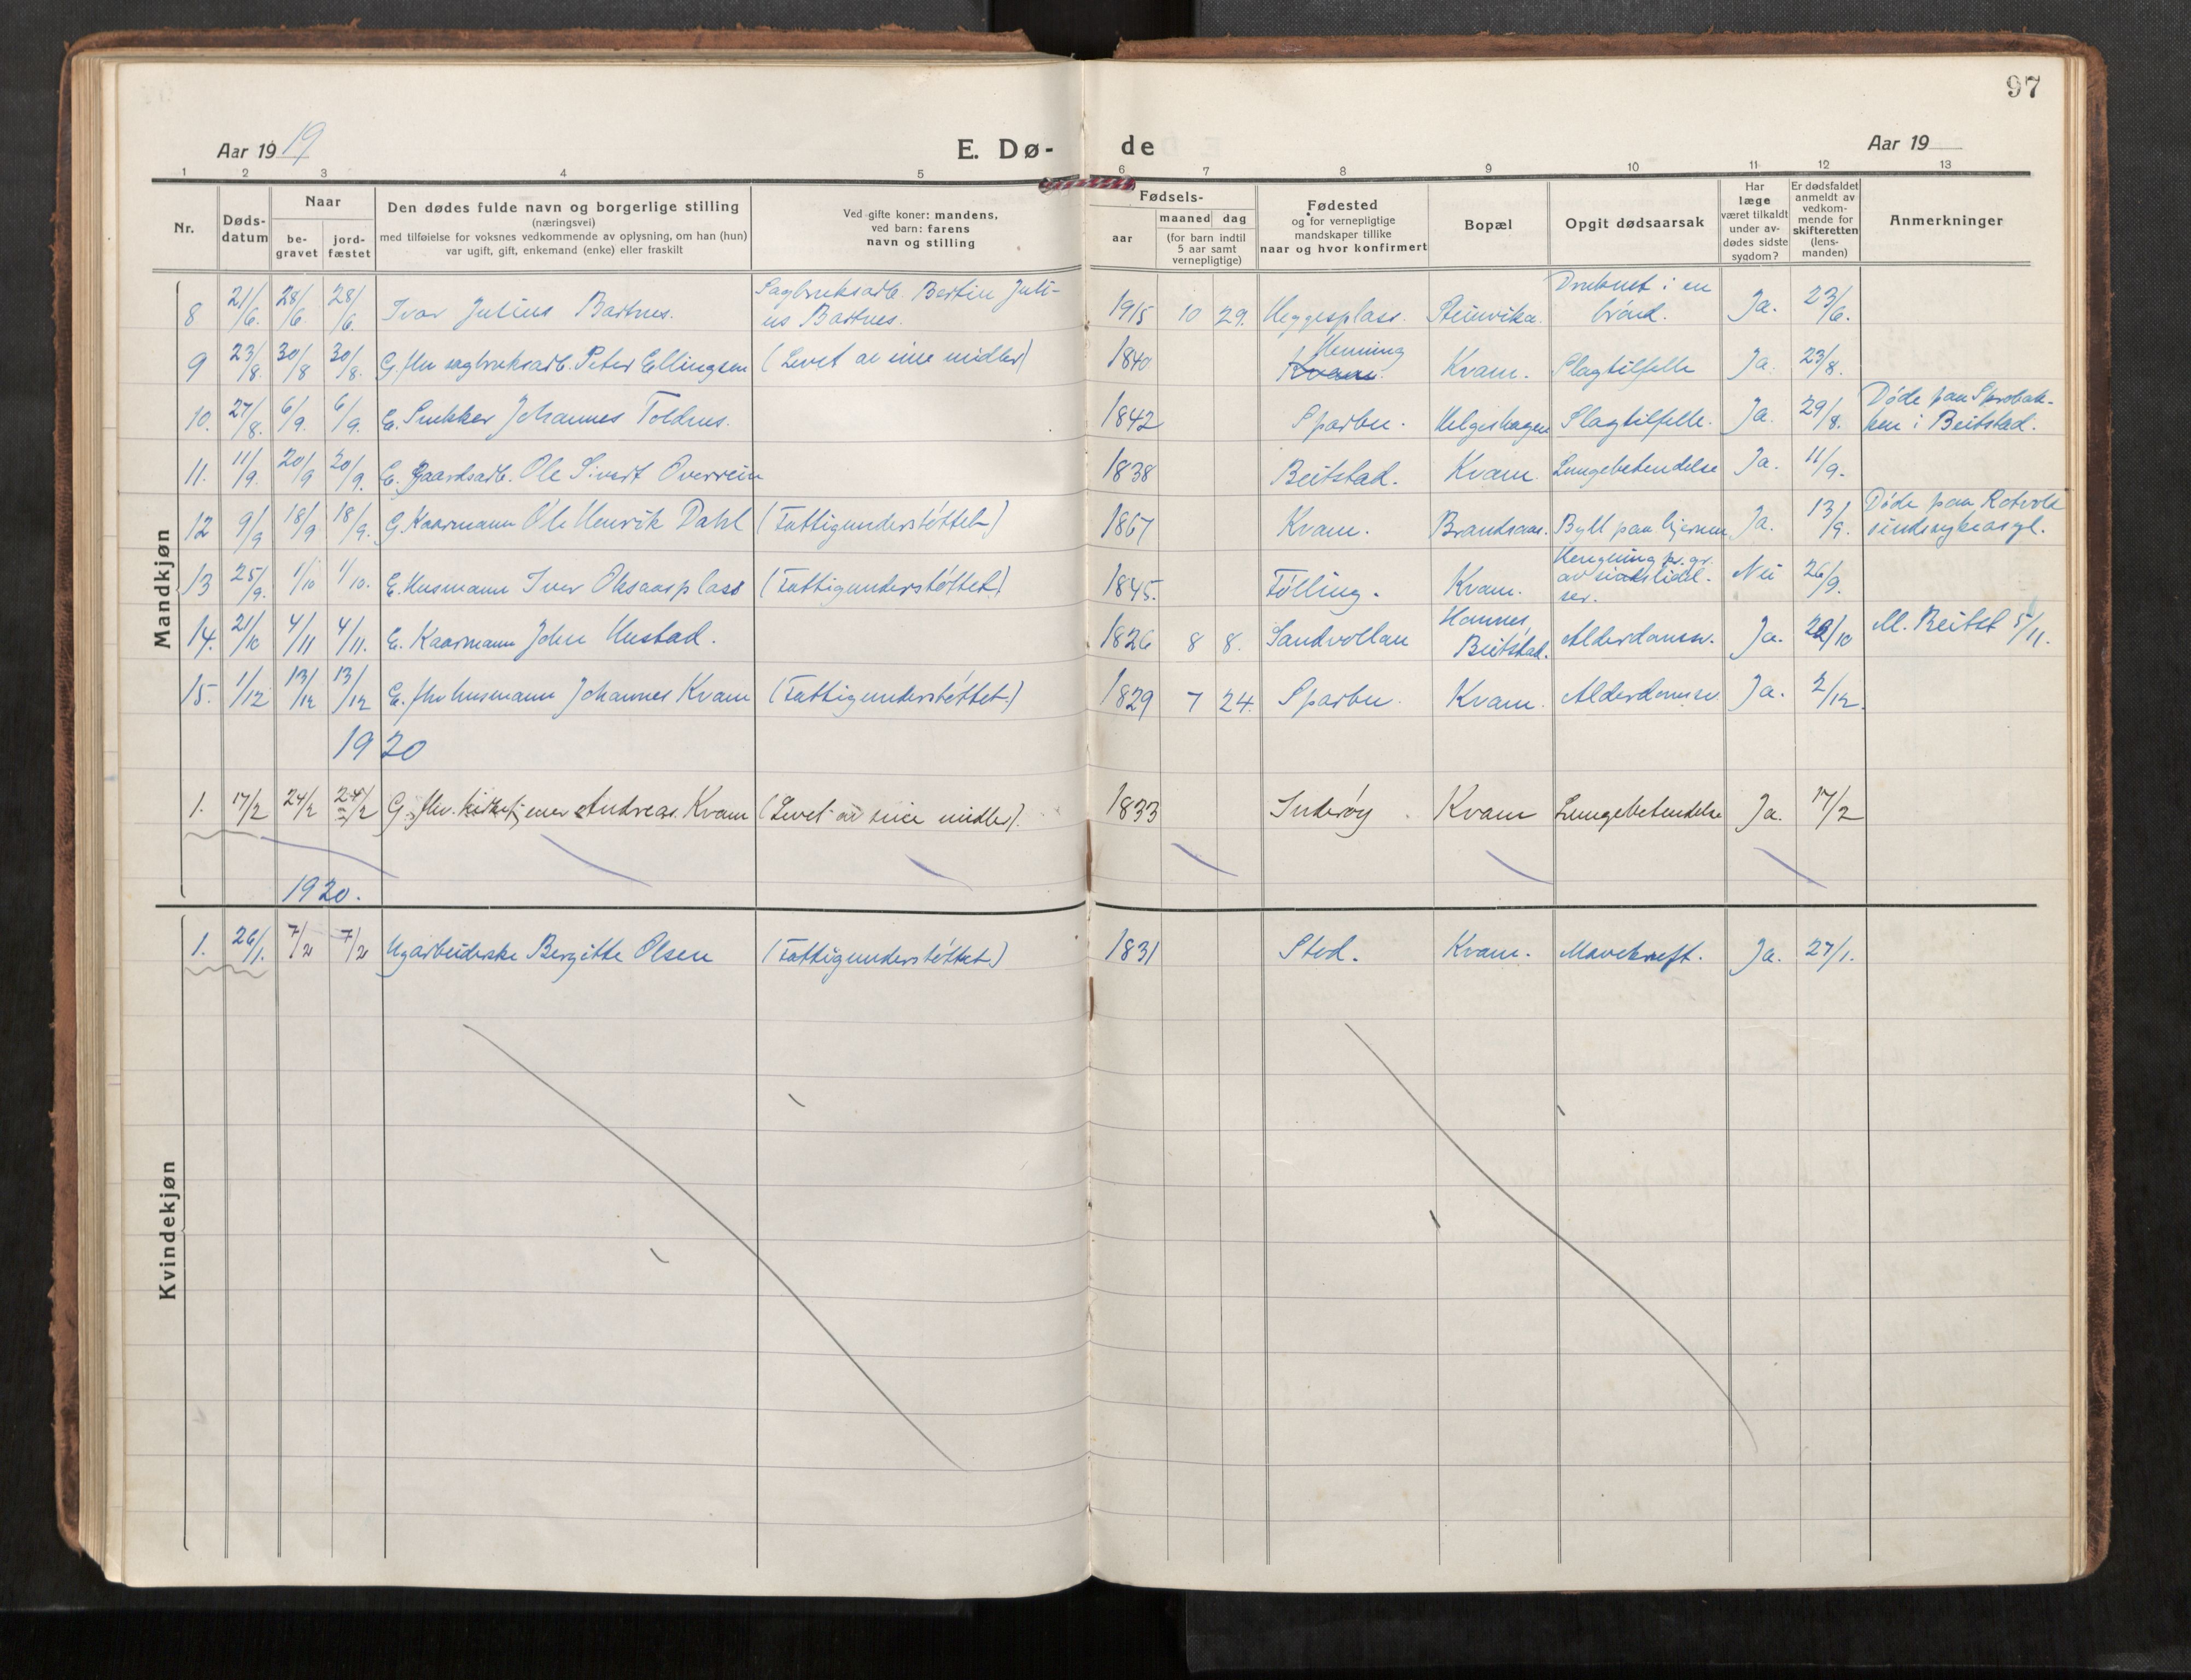 97
Aar 1919
E. Dø-
de
Aar 19
1 2 3 4 5 6 7 8 9 10 11 12 13
Nr.
Døds-
datum
Naar
be-
gravet
jord-
fæstet
Den dødes fulde navn og borgerlige stilling
(næringsvei)
med tilføielse for voksnes vedkommende av oplysning, om han (hun)
var ugift, gift, enkemand (enke) eller fraskilt
Ved gifte koner: mandens,
ved barn: farens
navn og stilling
Fødsels-
aar
maaned dag
(for barn indtil
5 aar samt
vernepligtige)
Fødested
og for vernepligtige
mandskaper tillike
naar og hvor konfirmert
Bopæl
Opgit dødsaarsak
Har
læge
været tilkaldt
under av-
dødes sidste
sygdom?
Er dødsfaldet
anmeldt av
vedkom-
mende for
skifteretten
(lens-
manden)
Anmerkninger
Mandkjøn
8 21/6. 28/6 28/6. Ivar Julius Bartnes. Sagbruksarb. Bertin Juli-
us Bartnes. 1915 10 29. Heggesplass. Steinvika. Druknet i en
brönd. Ja. 23/6.
9 23/8. 30/8 30/8. G. fhv sagbruksarb. Peter Ellingsen (Levet av sine midler) 1840 Henning
Kvam. Kvam. Slagtilfelle Ja. 23/8.
10. 27/8. 6/9. 6/9. E. Snekker Johannes Toldnes. 1842 Sparbu. Helgeshagen Slagtilfelle. Ja. 29/8. Döde paa
i Beitstad.
11. 11/9. 20/9 20/9. E. Gaardsarb. Ole Sivert Overrein 1838 Beitstad. Kvam. Lungebetendelse Ja. 11/9.
12 9/9 18/9 18/9. G. Kaarmann Ole Henrik Dahl (Fattigunderstöttet) 1867 Kvam. Brandsaas. Byll paa hjernen Ja. 13/9. Döde paa Rotvold
sindsykeasyl.
13 25/9. 1/10 1/10. E. Husmann Iver Oksaasplass (Fattigunderstöttet) 1845. Fölling. Kvam. Hengning pr. gr.
av sindslidel-
ser. Nei 26/9.
14. 21/10 4/11 4/11. E. Kaarmann John Hustad. 1826 8 8. Sandvollan Hamnes,
Beitstad. Alderdomsv. Ja. 22/10 M. Beitst 5/11.
15. 1/12 13/12 13/12 E. fhv husmann Johannes Kvam (Fattigunderstöttet) 1829 7 24. Sparbu. Kvam. Alderdomsv. Ja. 2/12.
1920
1. 17/2 24/2 24/2 G. fhv. kirketjener Andreas Kvam (Levet av sine midler). 1833 Inderöy. Kvam Lungebetendelse Ja. 17/2
1920.
Kvindekjøn
1. 26/1. 7/2 7/2 Ug arbeiderske Bergitte Olsen (Fattigunderstöttet) 1831 Stod. Kvam. Mavekreft. Ja. 27/1.